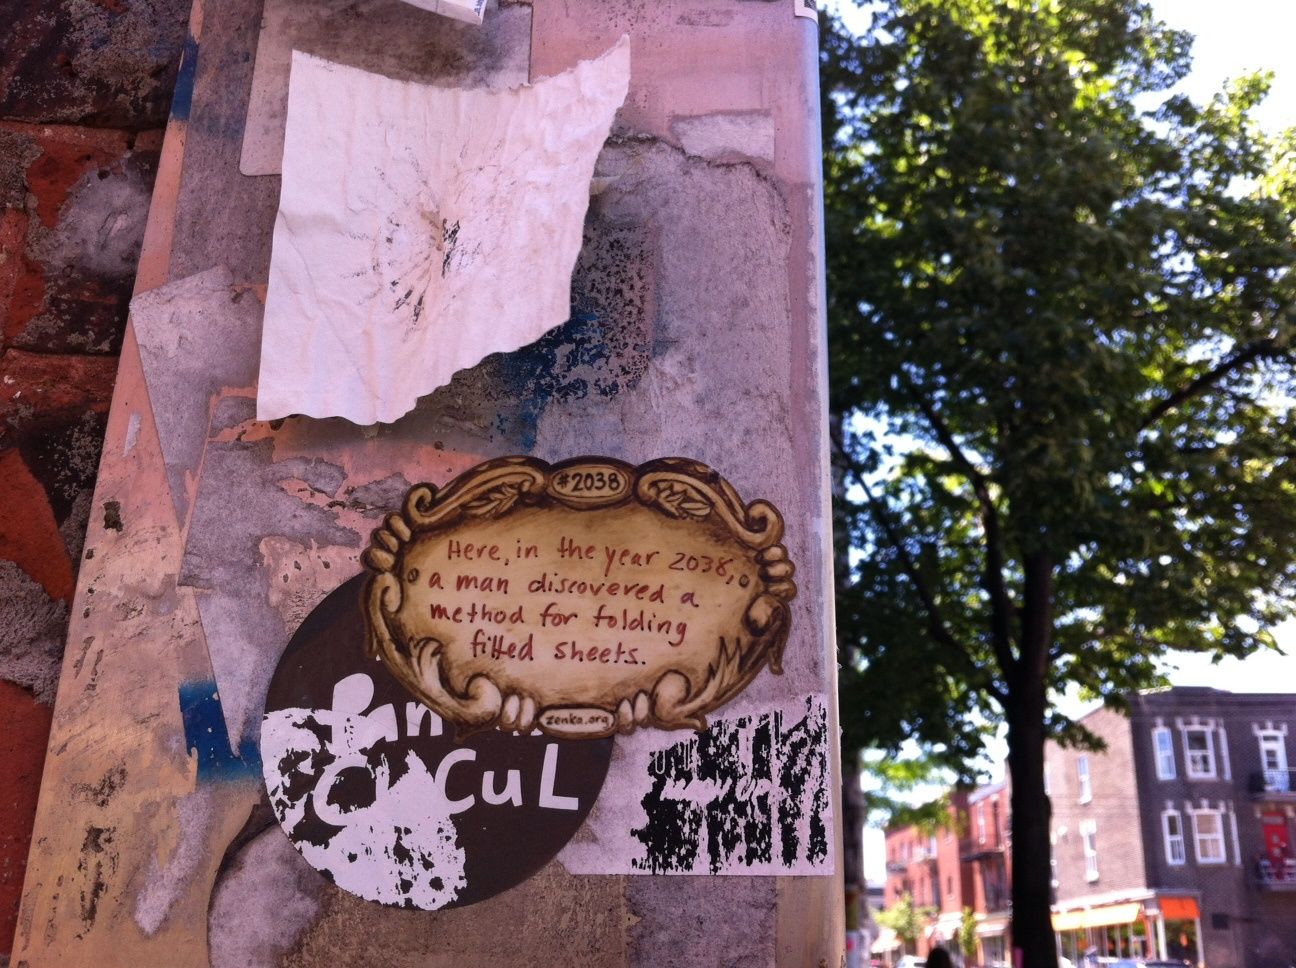 #2038
Here, in the year 2038,
a man discovered a
method for folding
fitted sheets.
zenka.org
CuL